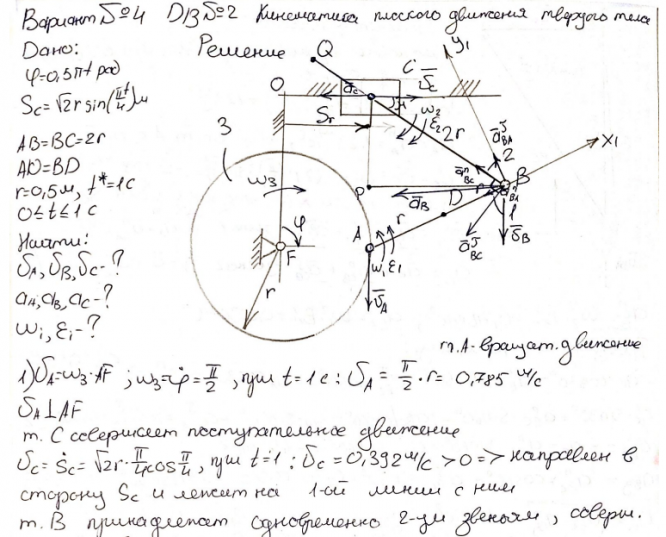 Вариант №4 ДЗ №2 Кинематика плоского движения твердого тела
Дано:
φ=0,5πt рад
Sc=√2r sin(πt/4) м
AB=BC=2r
AD=BD
r=0,5м, t*=1с
0≤t≤1с
Найти:
υA, υB, υC-?
aA, aB, aC-?
ωi, εi-?
Решение
Q
O
C
ῡc
āc
Sr
ω2
ε2
2r
y1
x1
3
ω3
φ
F
r
P
āB
A
ω1
ε1
ῡA
r
D
B
2
1
ῡB
т.A-вращат. движение
1) υA=ω3·AF ; ω3=φ̇=π/2 , при t=1с: υA=π/2·r=0,785 м/с
υA⊥AF
т. C совершает поступательное движение
υc=Ṡc=√2r·π/4 cos π/4, при t=1: υc=0,392м/с>0=>направлен в
сторону Sc и лежит на 1-ой линии с ним
т. B принадлежат одновременно 2-ум звеньям, соверш.